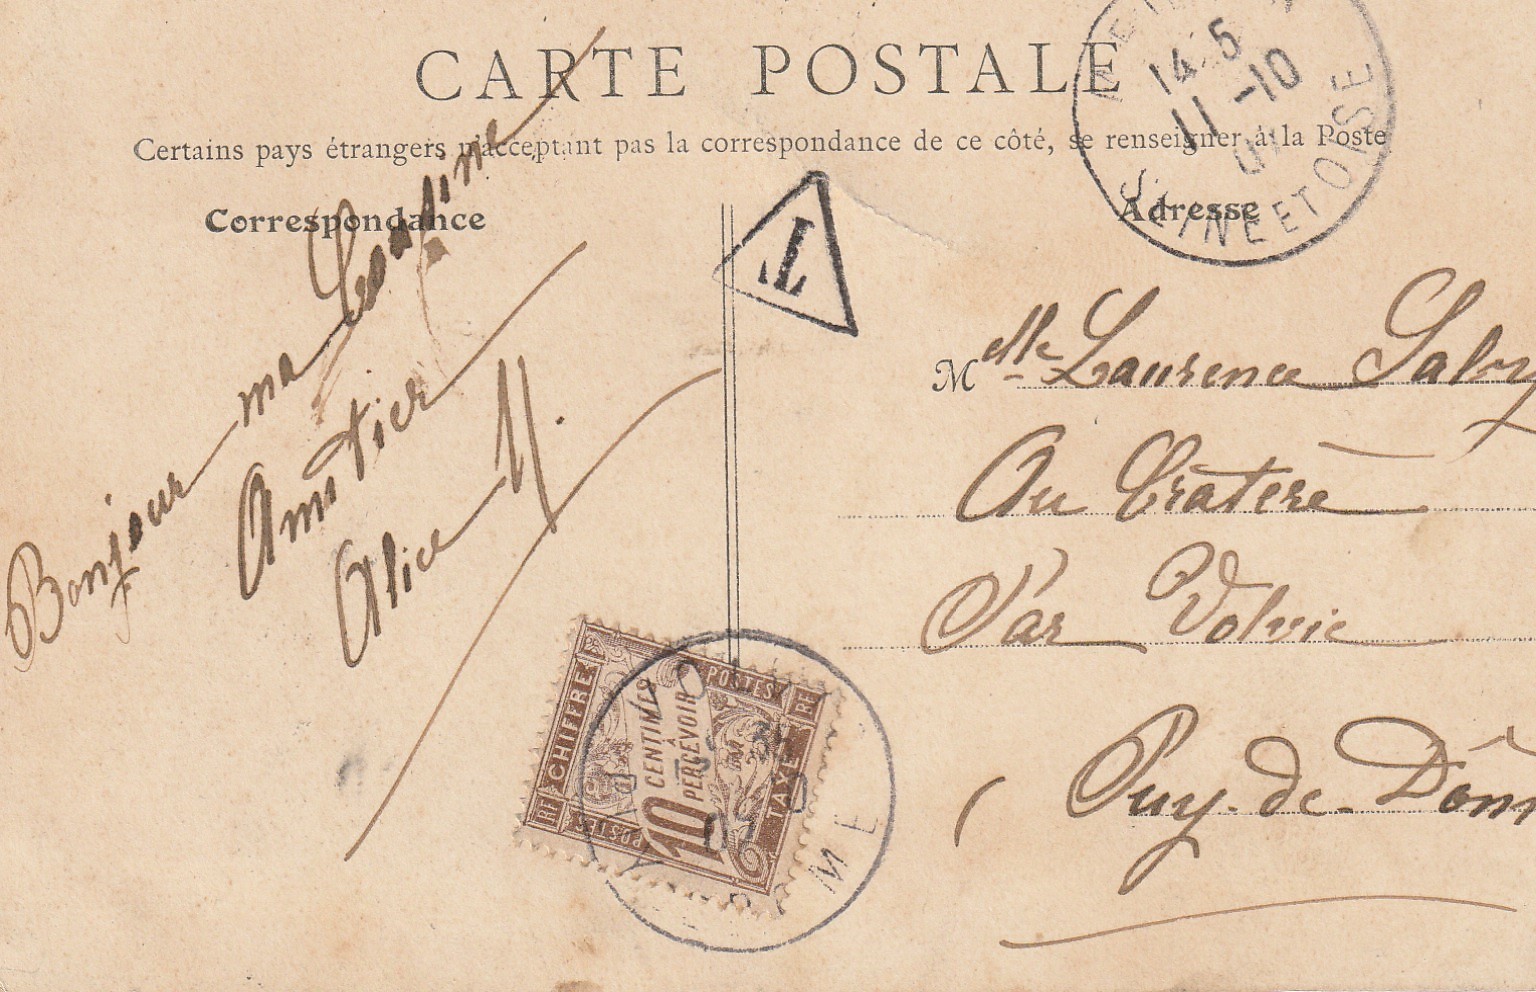 CARTE POSTALE
Certains pays étrangers n'acceptant pas la correspondance de ce côté, se renseigner à la Poste
Correspondance
Adresse
14 5
11 -10
07
SEINE ET OISE
T
Bonjour ma
Amitiés
Alice
Melle Laurence
Au Cratère
Par Volvic
(Puy-de-Dôm
CHIFFRE
POSTES
TAXE
RF
RF
POSTES
10
CENTIMES
À
PERCEVOIR